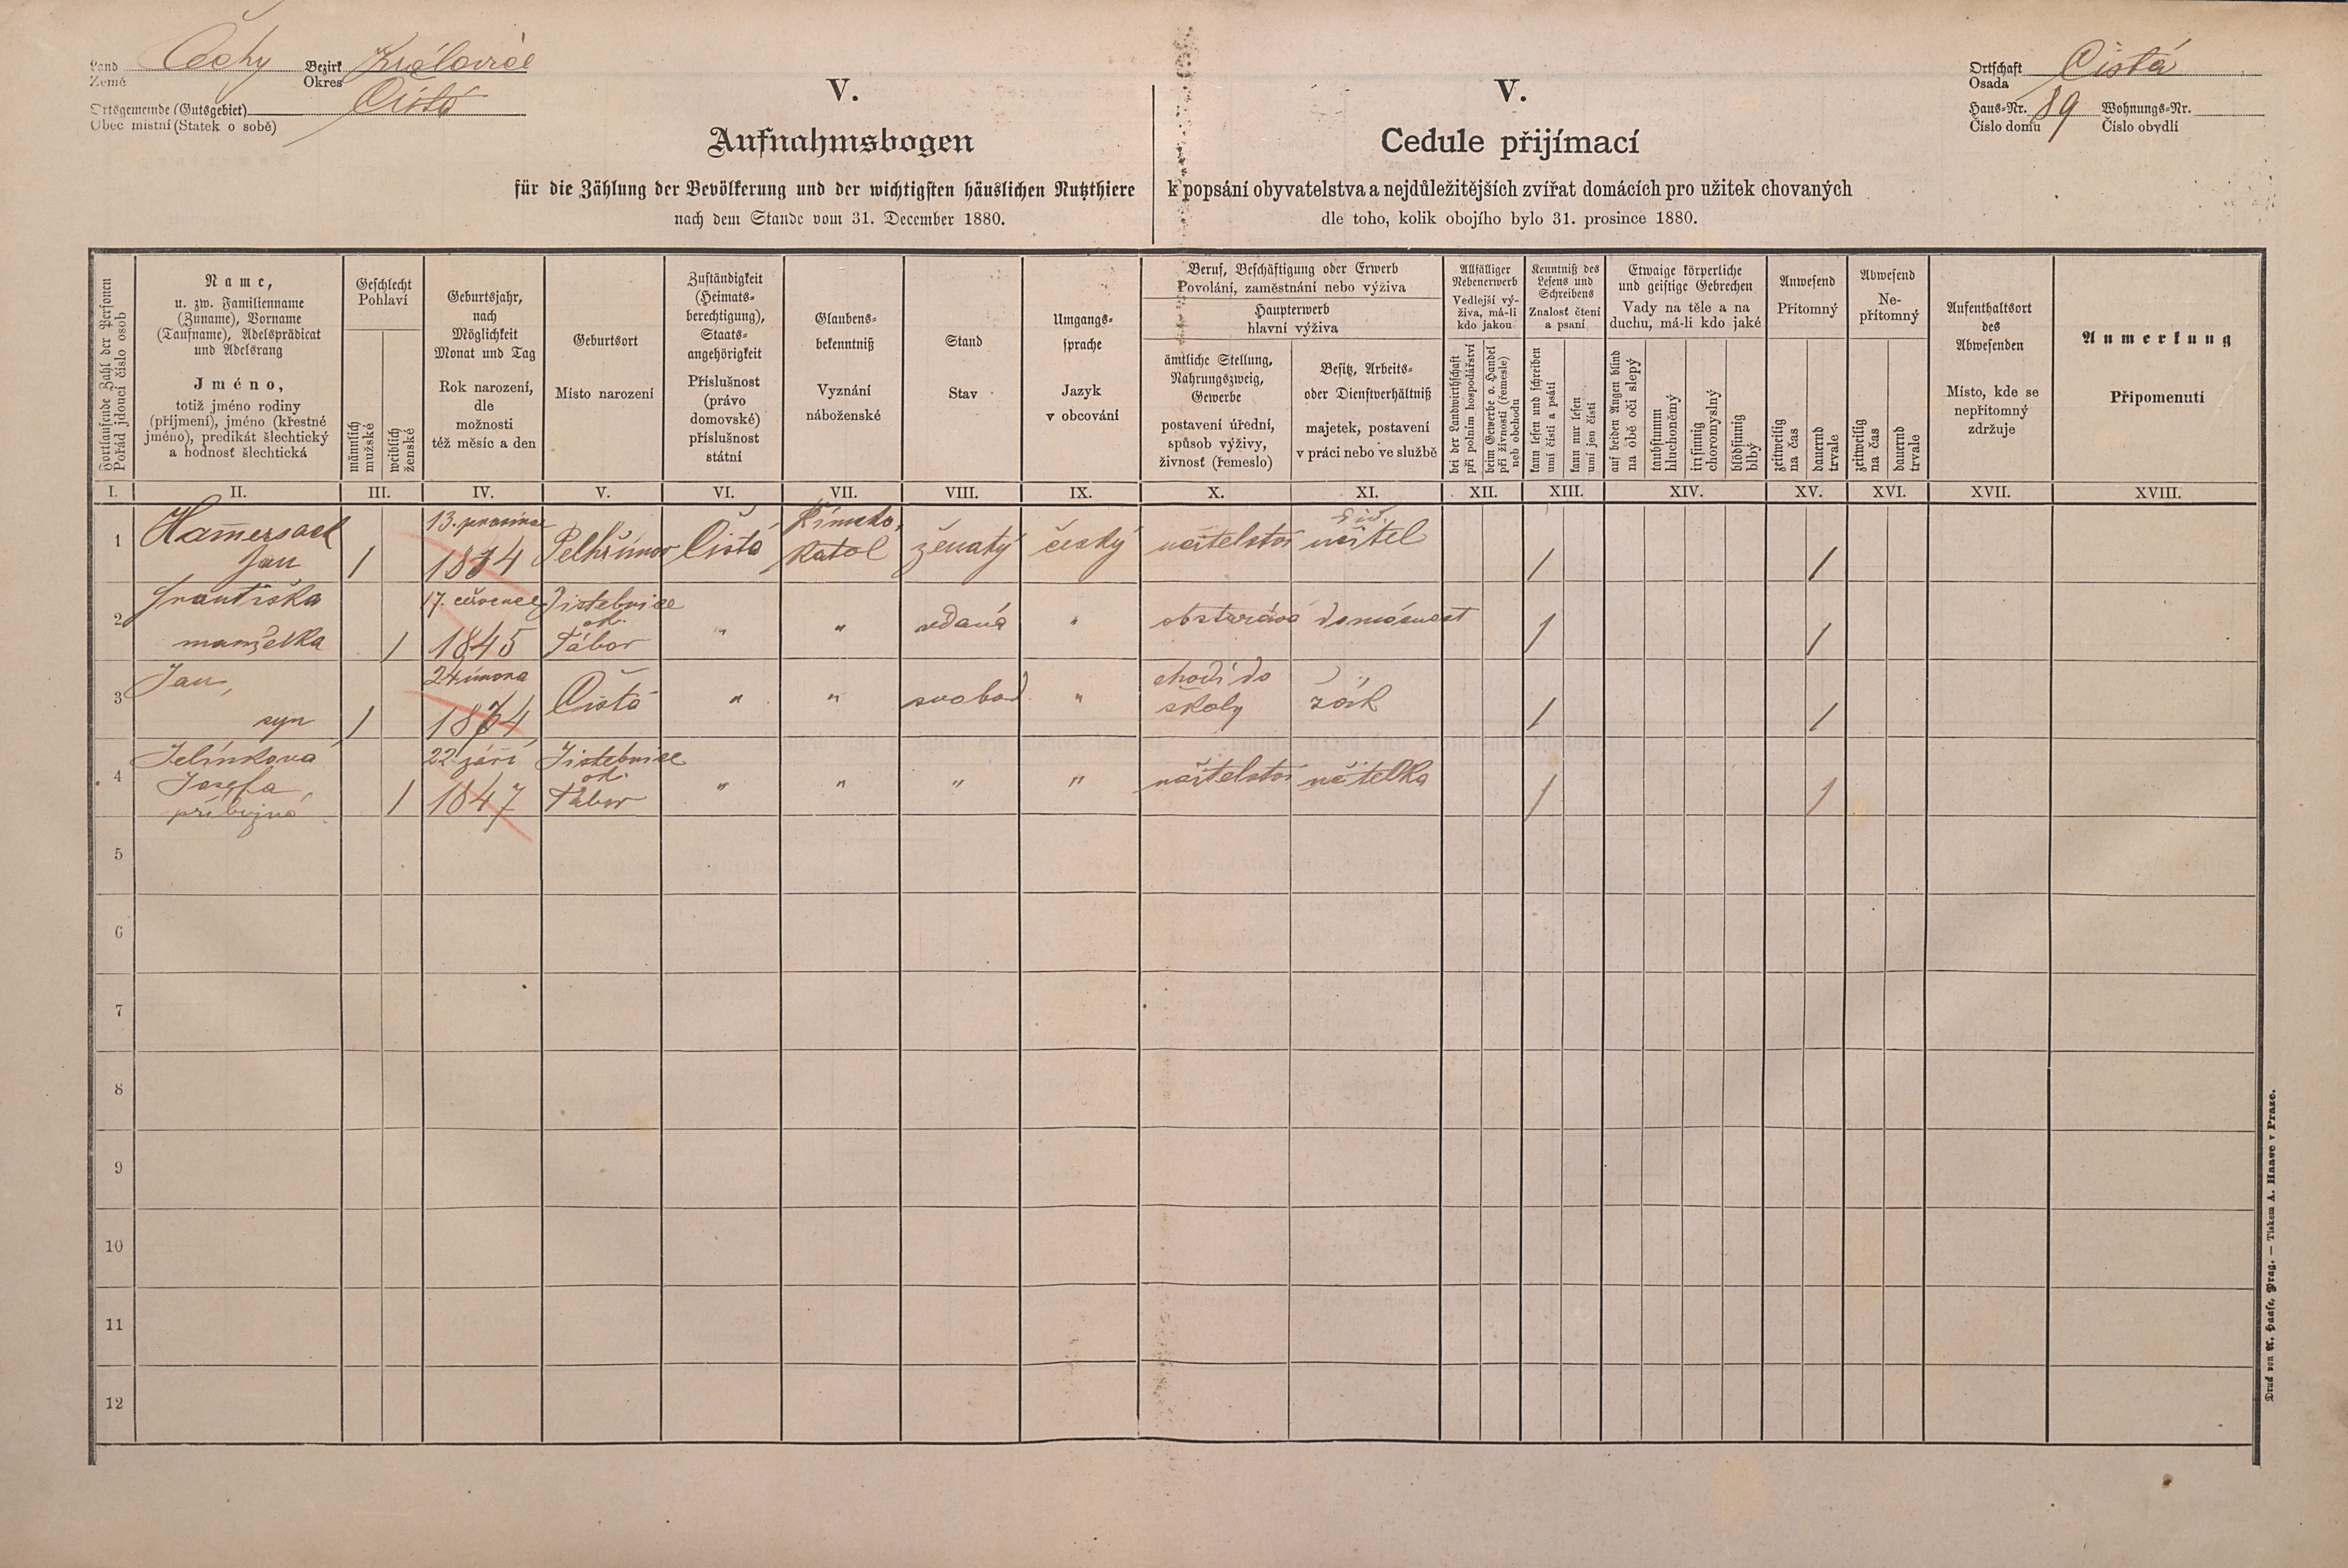 Land Čechy Bezirk Královice
Země Okres
Ortsgemeinde (Gutsgebiet) Čistá
Obec místní (Statek o sobě)
V.
Aufnahmsbogen
für die Zählung der Bevölkerung und der wichtigsten häuslichen Nutzthiere
nach dem Stande vom 31. December 1880.
V.
Cedule přijímací
k popsání obyvatelstva a nejdůležitějších zvířat domácích pro užitek chovaných
dle toho, kolik obojího bylo 31. prosince 1880.
Ortschaft Čistá
Osada
Haus-Nr. 89 Wohnungs-Nr.
Číslo domu Číslo obydlí
Fortlaufende Zahl der Personen
Pořád jdoucí číslo osob
Name,
u. zw. Familienname
(Zuname), Vorname
(Taufname), Adelsprädicat
und Adelsrang
Jméno,
totiž jméno rodiny
(příjmení), jméno (křestné
jméno), predikát šlechtický
a hodnosť šlechtická
Geschlecht
Pohlaví
männlich
mužské
weiblich
ženské
Geburtsjahr,
nach
Möglichkeit
Monat und Tag
Rok narození,
dle
možnosti
též měsíc a den
Geburtsort
Místo narození
Zuständigkeit
(Heimats-
berechtigung),
Staats-
angehörigkeit
Příslušnost
(právo
domovské)
příslušnost
státní
Glaubens-
bekenntniß
Vyznání
náboženské
Stand
Stav
Umgangs-
sprache
Jazyk
v obcování
Beruf, Beschäftigung oder Erwerb
Povolání, zaměstnání nebo výživa
Haupterwerb
hlavní výživa
ämtliche Stellung,
Nahrungszweig,
Gewerbe
postavení úřední,
spůsob výživy,
živnosť (řemeslo)
Besitz, Arbeits-
oder Dienstverhältniß
majetek, postavení
v práci nebo ve službě
Allfälliger
Nebenerwerb
Vedlejší vý-
živa, má-li
kdo jakou
bei der Landwirthschaft
při polním hospodářství
beim Gewerbe o. Handel
při živnosti (řemesle)
neb obchodu
Kenntniß des
Lesens und
Schreibens
Znalosť čtení
a psaní
kann lesen und schreiben
umí čísti a psáti
kann nur lesen
umí jen čísti
Etwaige körperliche
und geistige Gebrechen
Vady na těle a na
duchu, má-li kdo jaké
auf beiden Augen blind
na obě oči slepý
taubstumm
hluchoněmý
irrsinnig
choromyslný
blödsinnig
blbý
Anwesend
Přítomný
zeitweilig
na čas
dauernd
trvale
Abwesend
Ne-
přítomný
zeitweilig
na čas
dauernd
trvale
Aufenthaltsort
des
Abwesenden
Místo, kde se
nepřítomný
zdržuje
Anmerkung
Připomenutí
I. II. III. IV. V. VI. VII. VIII. IX. X. XI. XII. XIII. XIV. XV. XVI. XVII. XVIII.
1 13. prosince Římsko,
Jan / 1834 Pelhřimov Čistá katol ženatý český učitelství učitel / /
2 Františka 17. července Jistebnice
ok.
manželka / 1845 Tábor " " vdaná " obstarává domácnost / /
3 Jan, 24 února chodí do
syn / 1874 Čistá " " svobod " školy žák / /
4 Jelínkova 22 září Jistebnice
Josefa, ok.
příbuzná / 1847 Tábor " " " " učitelství učitelka / /
5
6
7
8
9
10
11
12
Druck von A. Haase, Prag. — Tiskem A. Haase v Praze.